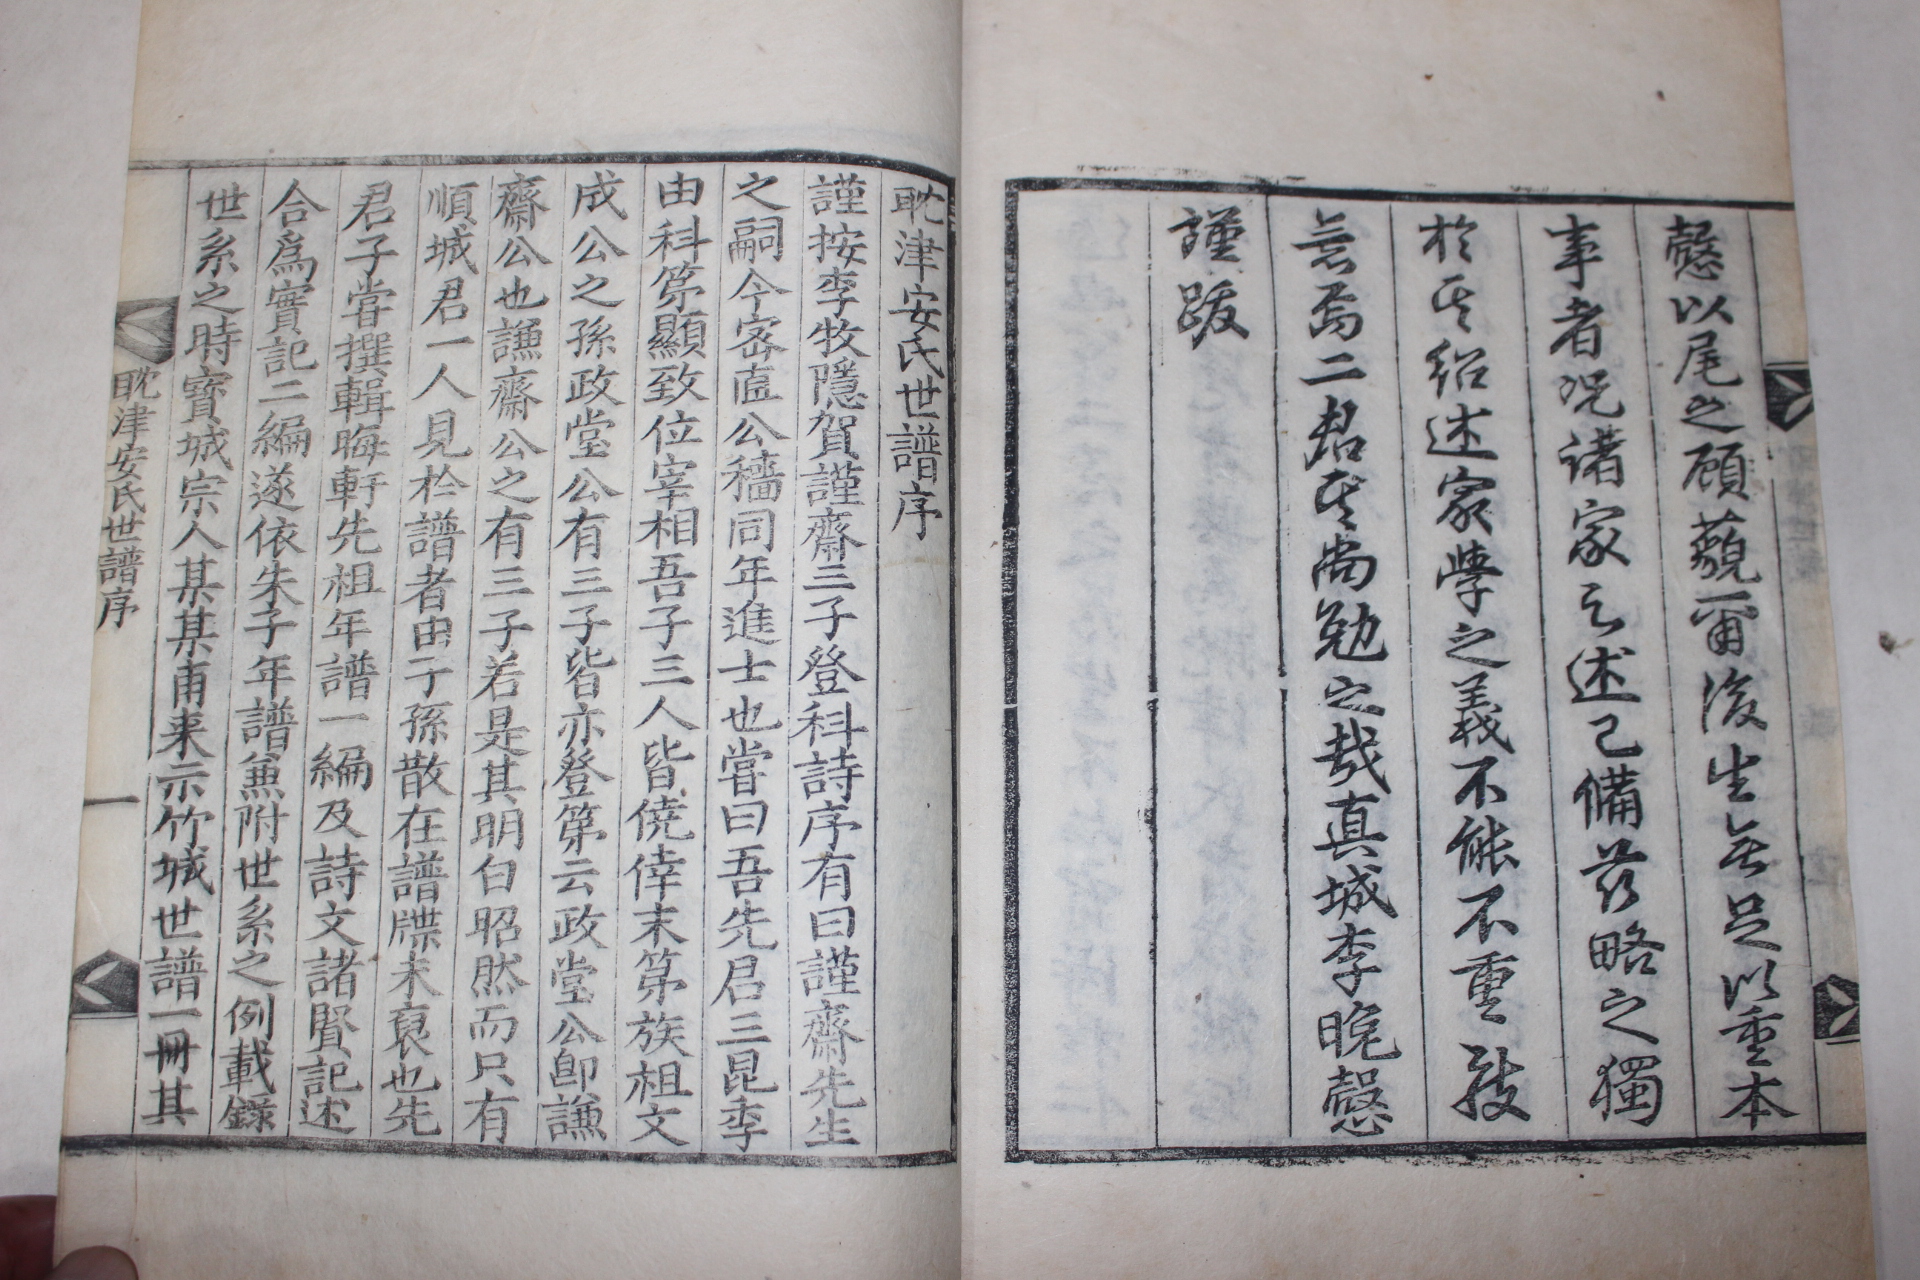 慤以尾之顧藐爾後生無足以重本
事者況諸家之述已備玆略之獨
於其紹述家學之義不能不重致
意焉二君其尚勉之哉真城李晚慤
謹跋
耽津安氏世譜序
謹按李牧隱賀謹齋三子登科詩序有曰謹齋先生
之嗣今密直公穡同年進士也嘗曰吾先君三昆季
由科第顯致位宰相吾子三人皆僥倖末第族祖文
成公之孫政堂公有三子皆亦登第云政堂公卽謙
齋公也謙齋公之有三子若是其明白昭然而只有
順城君一人見於譜者由子孫散在譜牒未裒也先
君子嘗撰輯晦軒先祖年譜一編及詩文諸賢記述
合爲實記二編遂依朱子年譜兼附世系之例載錄
世系之時寶城宗人某某甫来示竹城世譜一冊其
耽津安氏世譜序
一